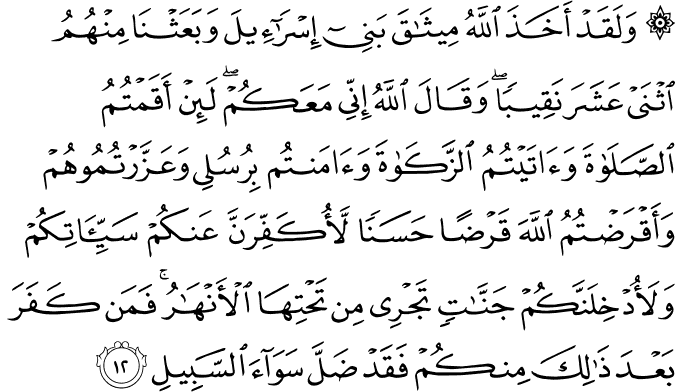 ۞ وَلَقَدْ أَخَذَ ٱللَّهُ مِيثَـٰقَ بَنِىٓ إِسْرَٰٓءِيلَ وَبَعَثْنَا مِنْهُمُ
ٱثْنَىْ عَشَرَ نَقِيبًا ۖ وَقَالَ ٱللَّهُ إِنِّى مَعَكُمْ ۖ لَئِنْ أَقَمْتُمُ
ٱلصَّلَوٰةَ وَءَاتَيْتُمُ ٱلزَّكَوٰةَ وَءَامَنتُم بِرُسُلِى وَعَزَّرْتُمُوهُمْ
وَأَقْرَضْتُمُ ٱللَّهَ قَرْضًا حَسَنًا لَّأُكَفِّرَنَّ عَنكُمْ سَيِّـَٔاتِكُمْ
وَلَأُدْخِلَنَّكُمْ جَنَّـٰتٍ تَجْرِى مِن تَحْتِهَا ٱلْأَنْهَـٰرُ ۚ فَمَن كَفَرَ
بَعْدَ ذَٰلِكَ مِنكُمْ فَقَدْ ضَلَّ سَوَآءَ ٱلسَّبِيلِ ١٢